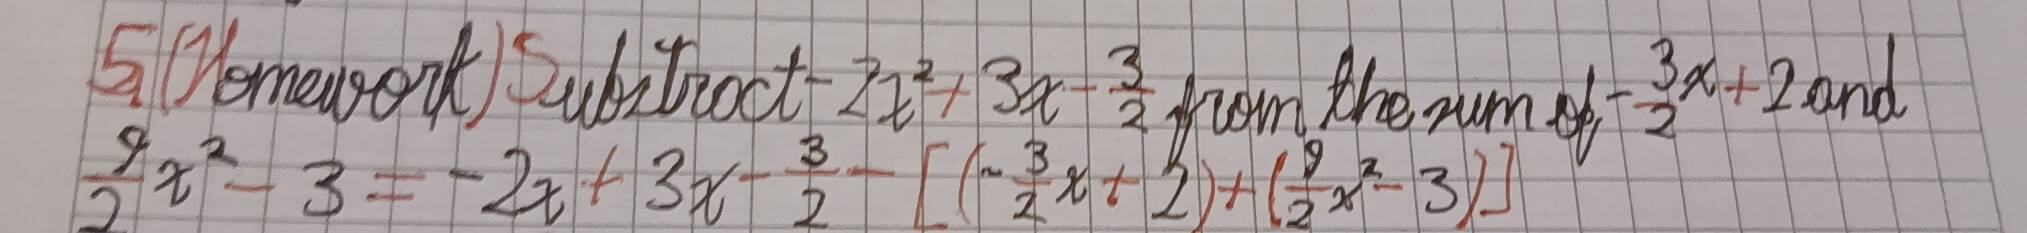 5) (Homework) Subtract -2x² + 3x - 3/2 from the sum of -3/2x + 2 and
9/2x² - 3 = -2x + 3x - 3/2 - [(-3/2x + 2) + (9/2x² - 3)]